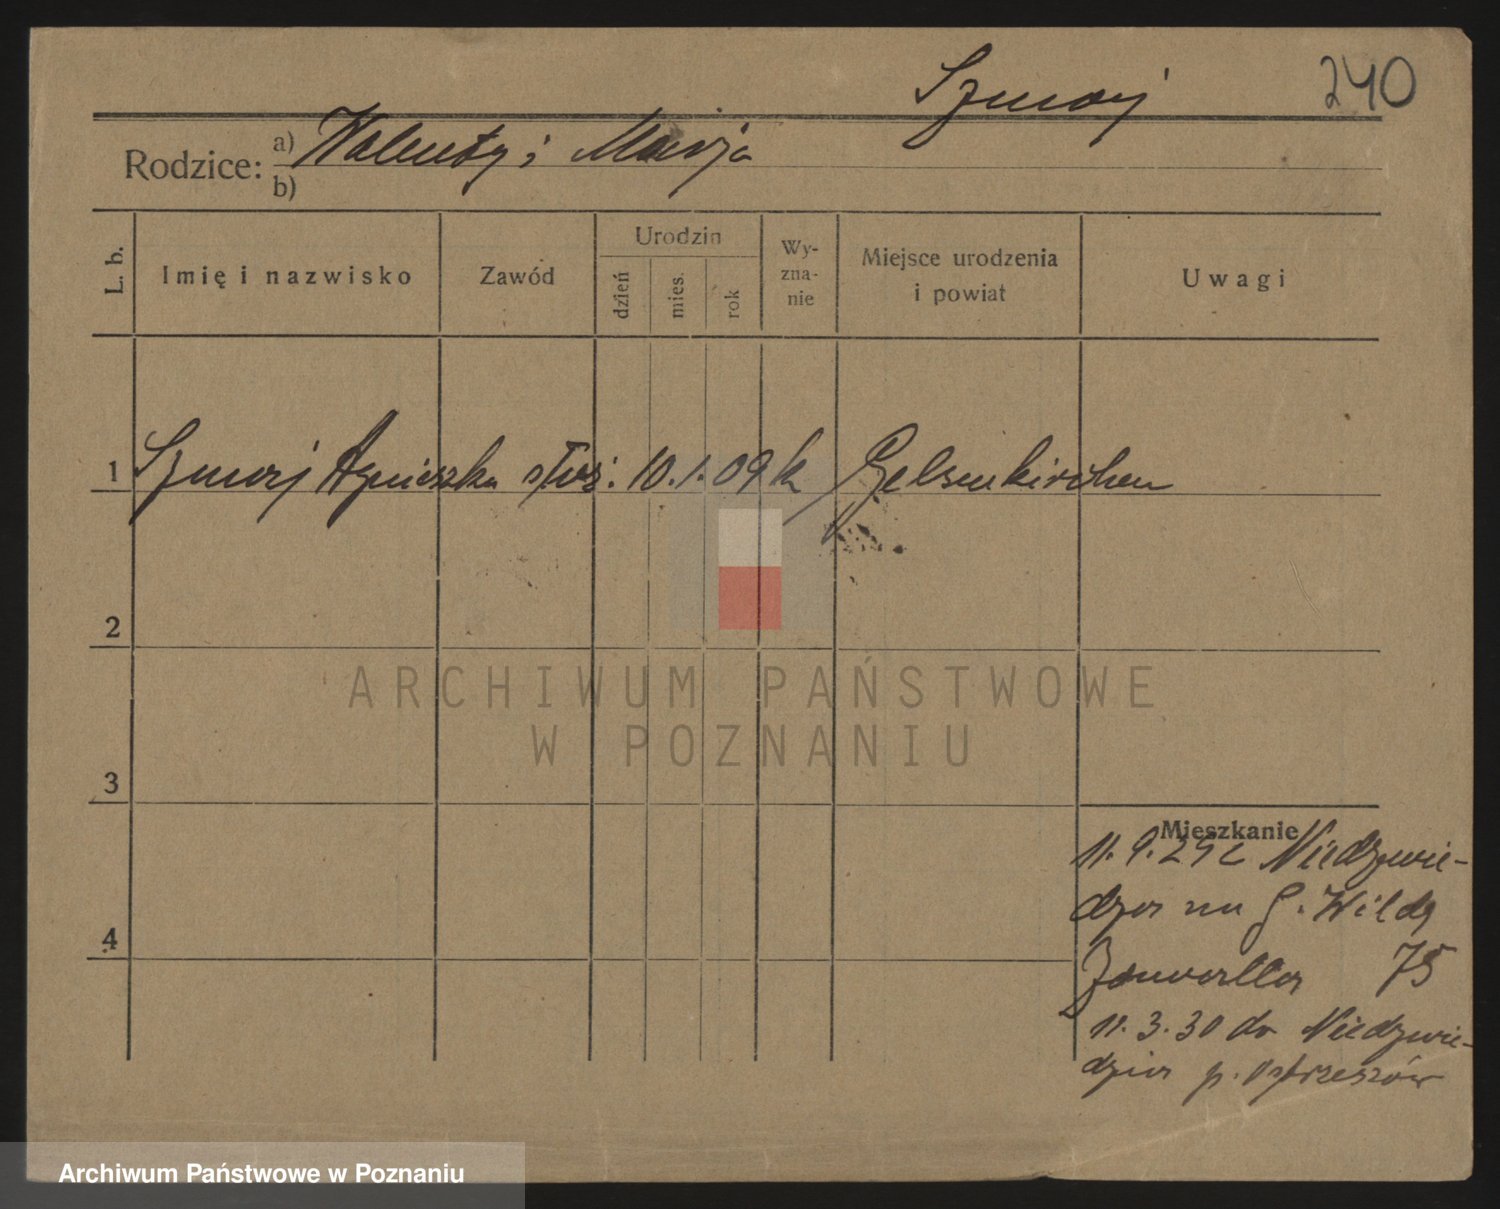 Szmaj
240
Rodzice: a) Walenty i Marja
b)
L. b. Imię i nazwisko Zawód Urodzin dzień mies. rok Wy-zna-nie Miejsce urodzenia i powiat Uwagi
1 Szmaj Agnieszka służ. 10. 1. 09 k Gelsenkirchen
2
ARCHIWUM PAŃSTWOWE
W POZNANIU
3
Mieszkanie
11. 9. 29 z Niedzwie-
dza na G. Wildę
75
4
11. 3. 30 do Niedzwie-
dzia p. Ostrzeszów
Archiwum Państwowe w Poznaniu